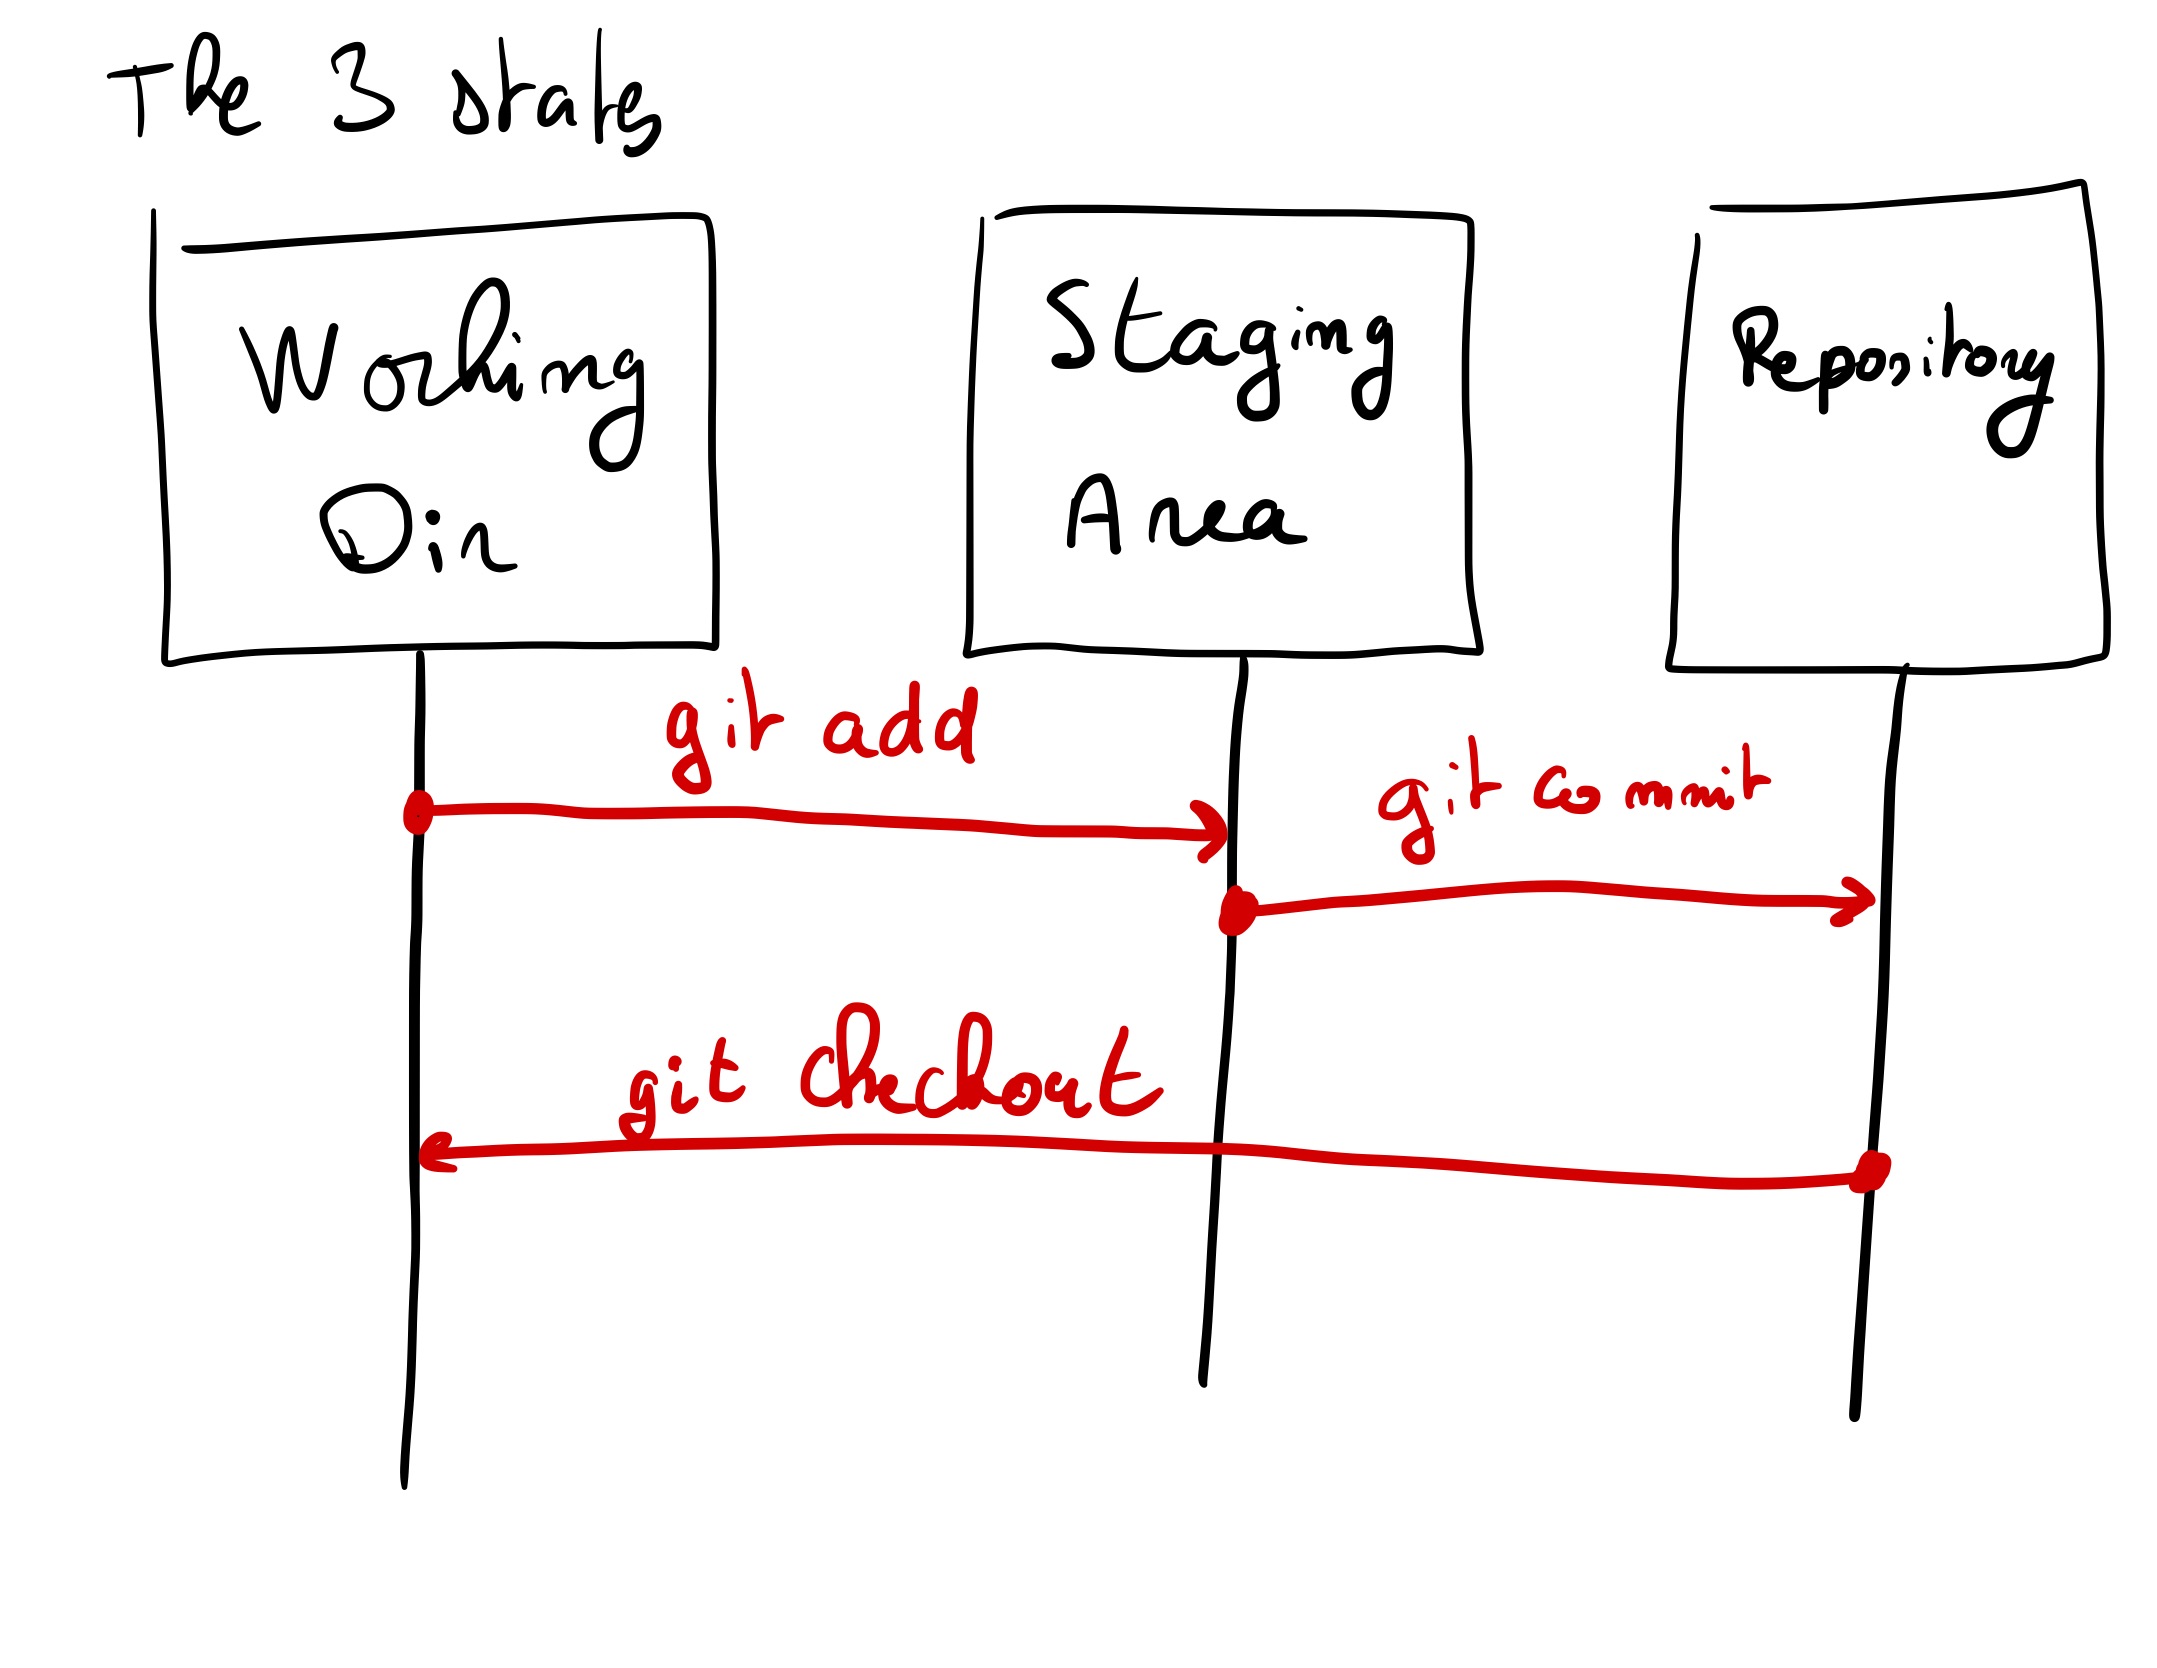 The 3 states
Working
Dir
Staging
Area
Repository
git add
git commit
git checkout